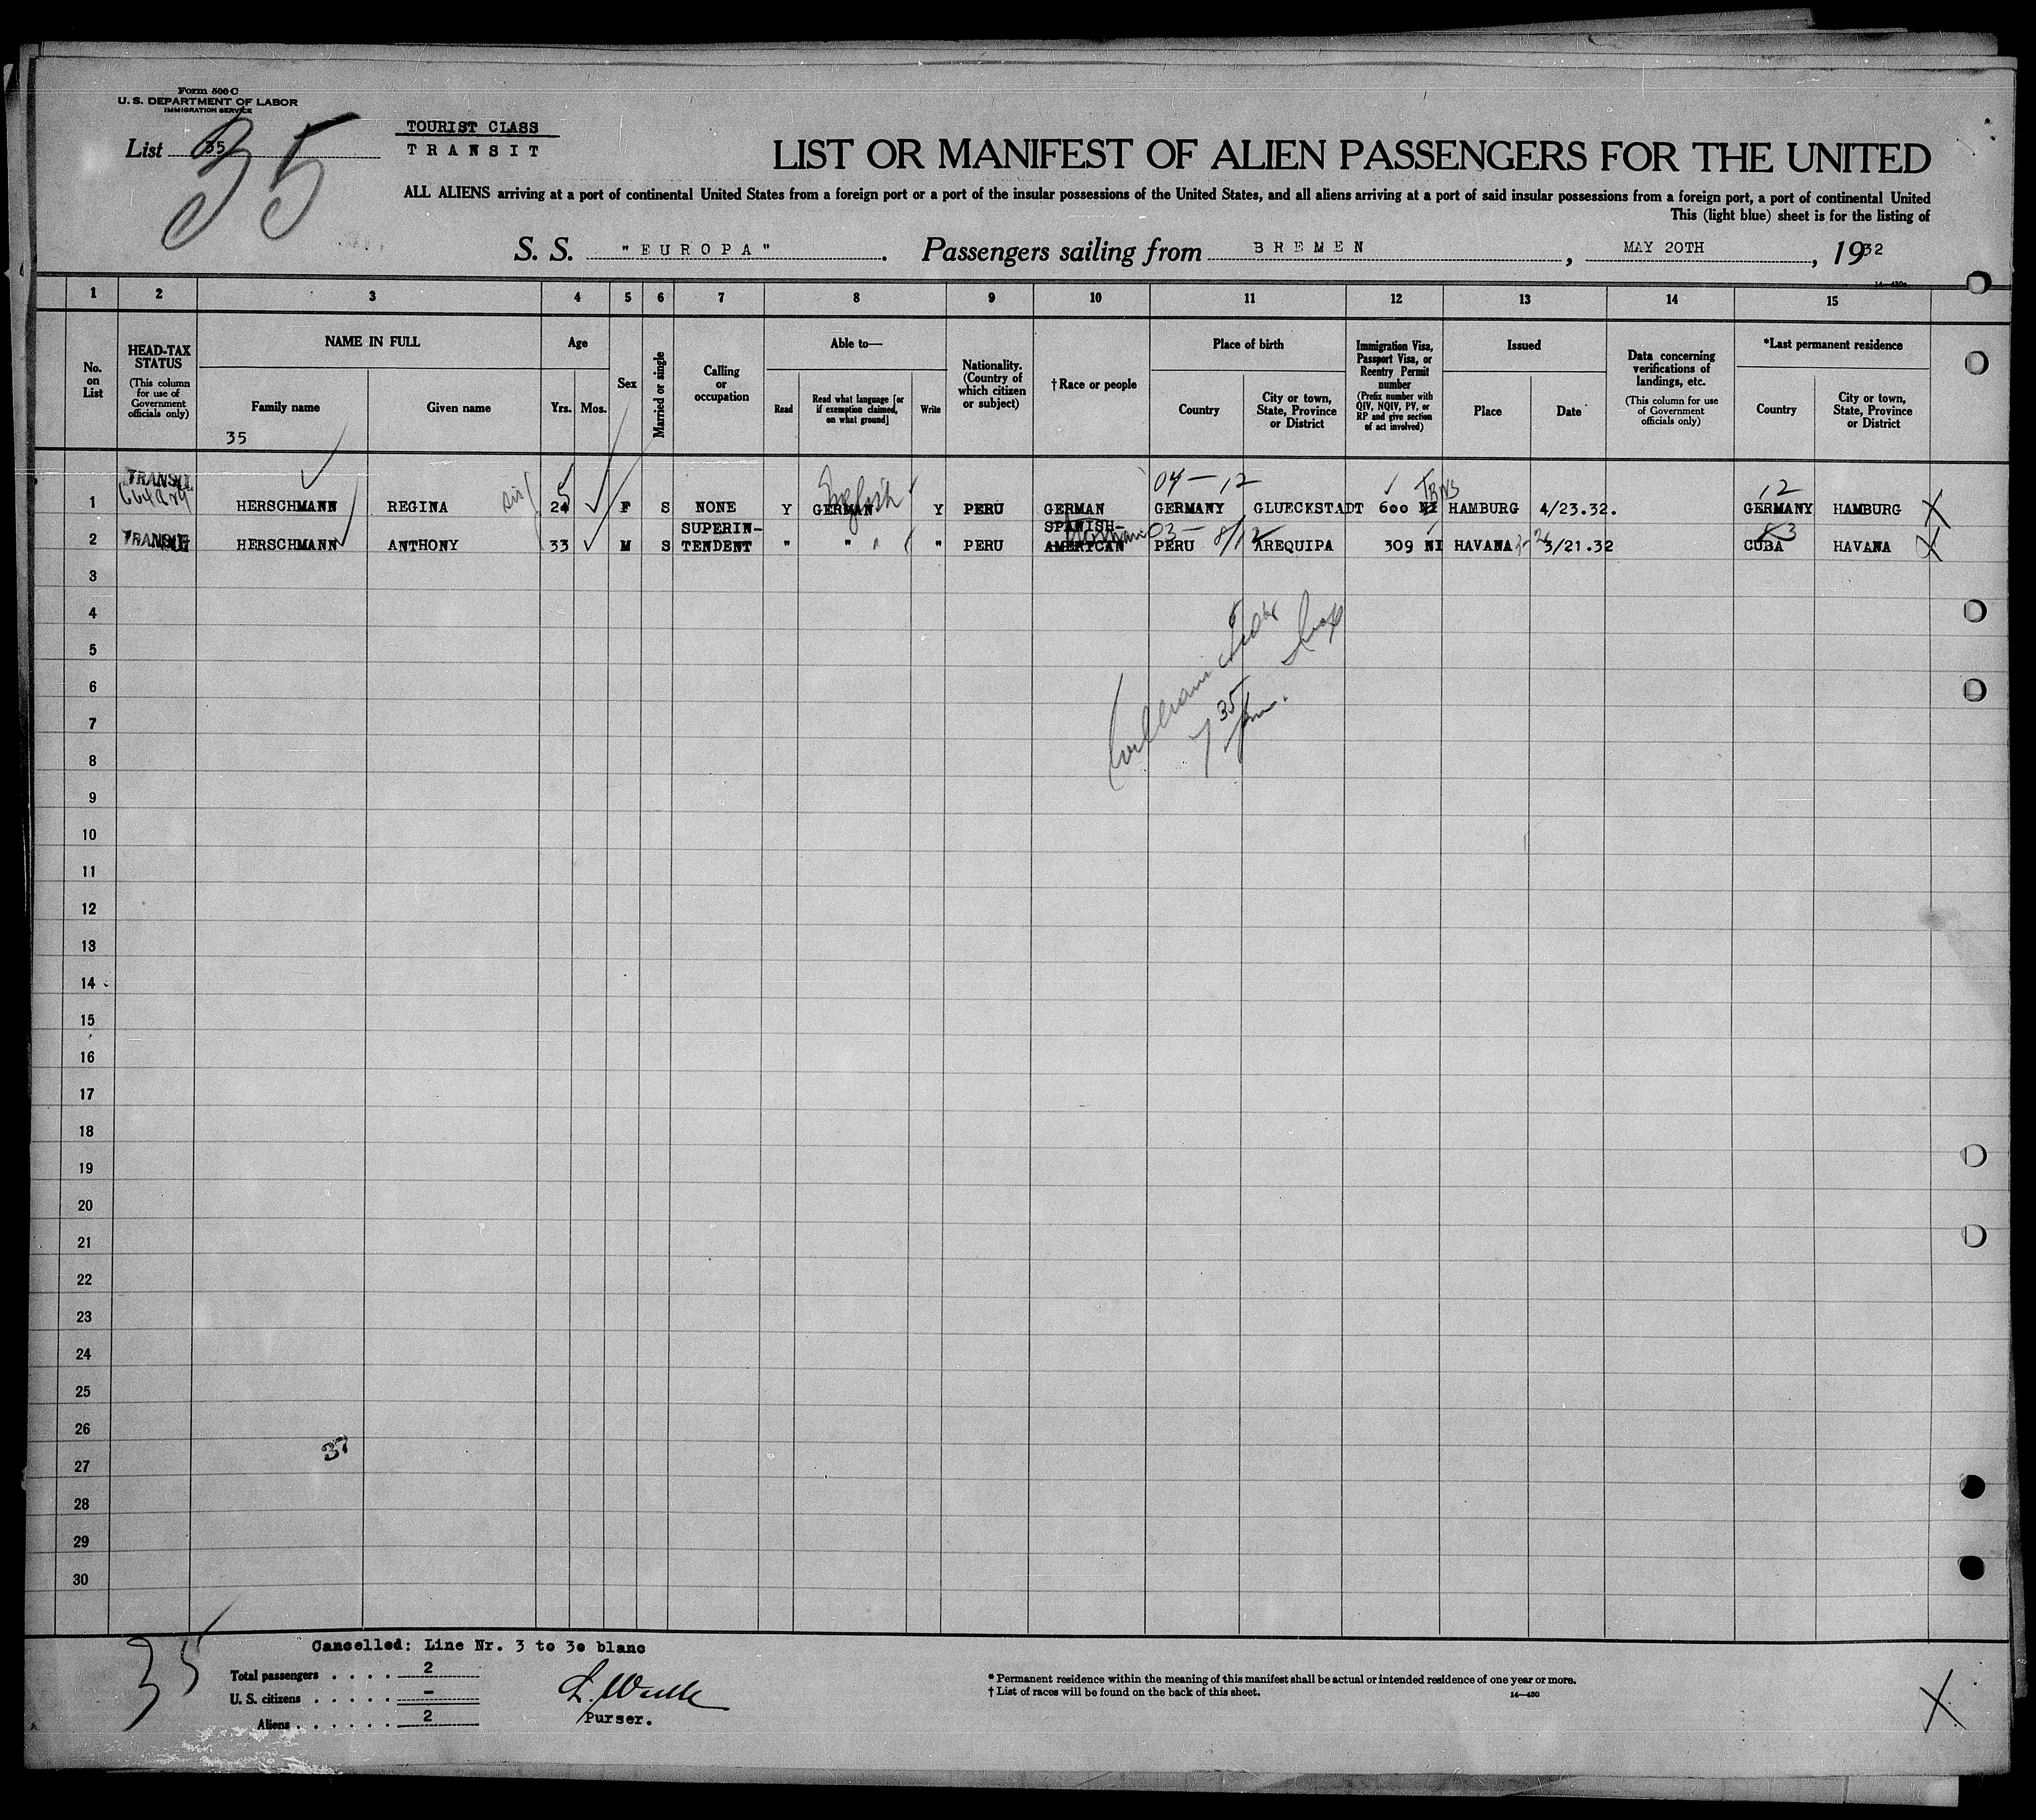 Form 500 C
U. S. DEPARTMENT OF LABOR
IMMIGRATION SERVICE
List 35
35
TOURIST CLASS
TRANSIT
LIST OR MANIFEST OF ALIEN PASSENGERS FOR THE UNITED
ALL ALIENS arriving at a port of continental United States from a foreign port or a port of the insular possessions of the United States, and all aliens arriving at a port of said insular possessions from a foreign port, a port of continental United
This (light blue) sheet is for the listing of
S. S. "EUROPA". Passengers sailing from BREMEN, MAY 20TH, 1932
14—430
1 2 3 4 5 6 7 8 9 10 11 12 13 14 15
No. on List
HEAD-TAX STATUS
(This column for use of Government officials only)
NAME IN FULL
Family name
Given name
35
Age
Yrs. Mos.
Sex
Married or single
Calling or occupation
Able to—
Read
Read what language [or if exemption claimed, on what ground]
Write
Nationality. (Country of which citizen or subject)
†Race or people
Place of birth
Country
City or town, State, Province or District
Immigration Visa, Passport Visa, or Reentry Permit number
(Prefix number with QIV, NQIV, PV, or RP and give section of act involved)
Issued
Place
Date
Data concerning verifications of landings, etc.
(This column for use of Government officials only)
*Last permanent residence
Country
City or town, State, Province or District
TRANSIT 04-12 12
1 HERSCHMANN REGINA 24 F S NONE Y GERMAN English Y PERU GERMAN GERMANY GLUECKSTADT 600 NI HAMBURG 4/23.32. GERMANY HAMBURG X
SUPERIN- SPANISH-
2 TRANSIT HERSCHMANN ANTHONY 33 M S TENDENT " " " PERU AMERICAN PERU AREQUIPA 309 NI HAVANA 3/21.32 CUBA HAVANA X
3
4
5
6
7
8
9
10
11
12
13
14
15
16
17
18
19
20
21
22
23
24
25
26
37
27
28
29
30
7 35 pm.
35
Cancelled: Line Nr. 3 to 30 blanc
Total passengers . . . . 2
U. S. citizens . . . . . -
Aliens . . . . . . 2
Purser.
* Permanent residence within the meaning of this manifest shall be actual or intended residence of one year or more.
† List of races will be found on the back of this sheet.
14—430
X